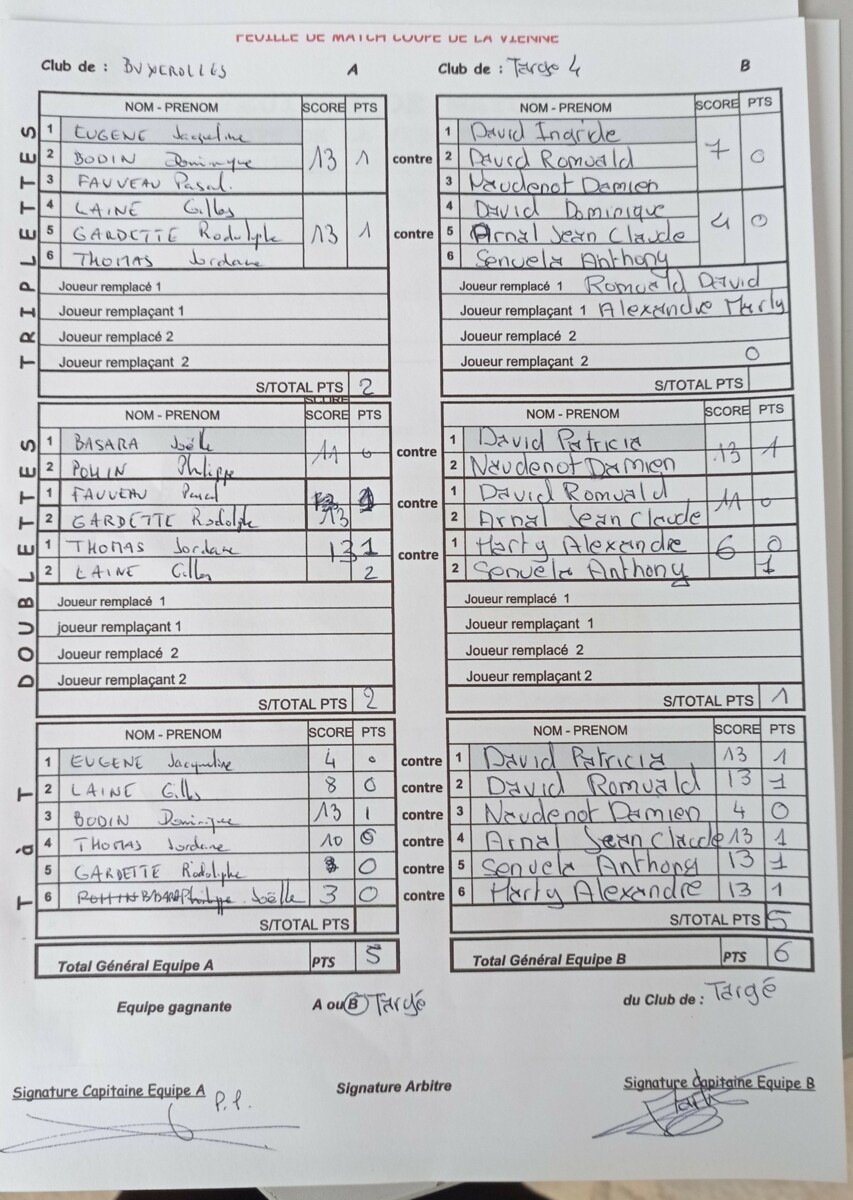 FEUILLE DE MATCH COUPE DE LA VIENNE
Club de : BUXEROLLES A Club de : Targe 4 B
TRIPLETTES
NOM - PRENOM SCORE PTS NOM - PRENOM SCORE PTS
1 EUGENE Jacqueline 1 David Ingride
2 BODIN Dominique 13 1 contre 2 David Romuald 7 0
3 FAUVEAU Pascal. 3 Naudenot Damien
4 LAINE Gilles 4 David Dominique
5 GARDETTE Rodolphe 13 1 contre 5 Arnal Jean Claude 4 0
6 THOMAS Jordane 6 Senuela Anthony
Joueur remplacé 1 Joueur remplacé 1 Romuald David
Joueur remplaçant 1 Joueur remplaçant 1 Alexandre Marty
Joueur remplacé 2 Joueur remplacé 2
Joueur remplaçant 2 Joueur remplaçant 2 0
S/TOTAL PTS 2 S/TOTAL PTS
DOUBLETTES
NOM - PRENOM SCORE PTS NOM - PRENOM SCORE PTS
1 BASARA Joëlle 11 0 contre 1 David Patricia 13 1
2 POHIN Philippe 2 Naudenot Damien
1 FAUVEAU Pascal contre 1 David Romuald 11 0
2 GARDETTE Rodolphe 13 2 Arnal Jean Claude
1 THOMAS Jordane 13 1 contre 1 Marty Alexandre 6 0
2 LAINE Gilles 2 2 Senuela Anthony 1
Joueur remplacé 1 Joueur remplacé 1
joueur remplaçant 1 Joueur remplaçant 1
Joueur remplacé 2 Joueur remplacé 2
Joueur remplaçant 2 Joueur remplaçant 2
S/TOTAL PTS 2 S/TOTAL PTS 1
T à T
NOM - PRENOM SCORE PTS NOM - PRENOM SCORE PTS
1 EUGENE Jacqueline 4 0 contre 1 David Patricia 13 1
2 LAINE Gilles 8 0 contre 2 David Romuald 13 1
3 BODIN Dominique 13 1 contre 3 Naudenot Damien 4 0
4 THOMAS Jordane 10 0 contre 4 Arnal Jean Claude 13 1
5 GARDETTE Rodolphe 0 contre 5 Senuela Anthony 13 1
6 BASARA Joëlle 3 0 contre 6 Marty Alexandre 13 1
S/TOTAL PTS S/TOTAL PTS 5
Total Général Equipe A PTS 5 Total Général Equipe B PTS 6
Equipe gagnante A ou B Targé du Club de : Targé
Signature Capitaine Equipe A Signature Arbitre Signature Capitaine Equipe B
P.P.